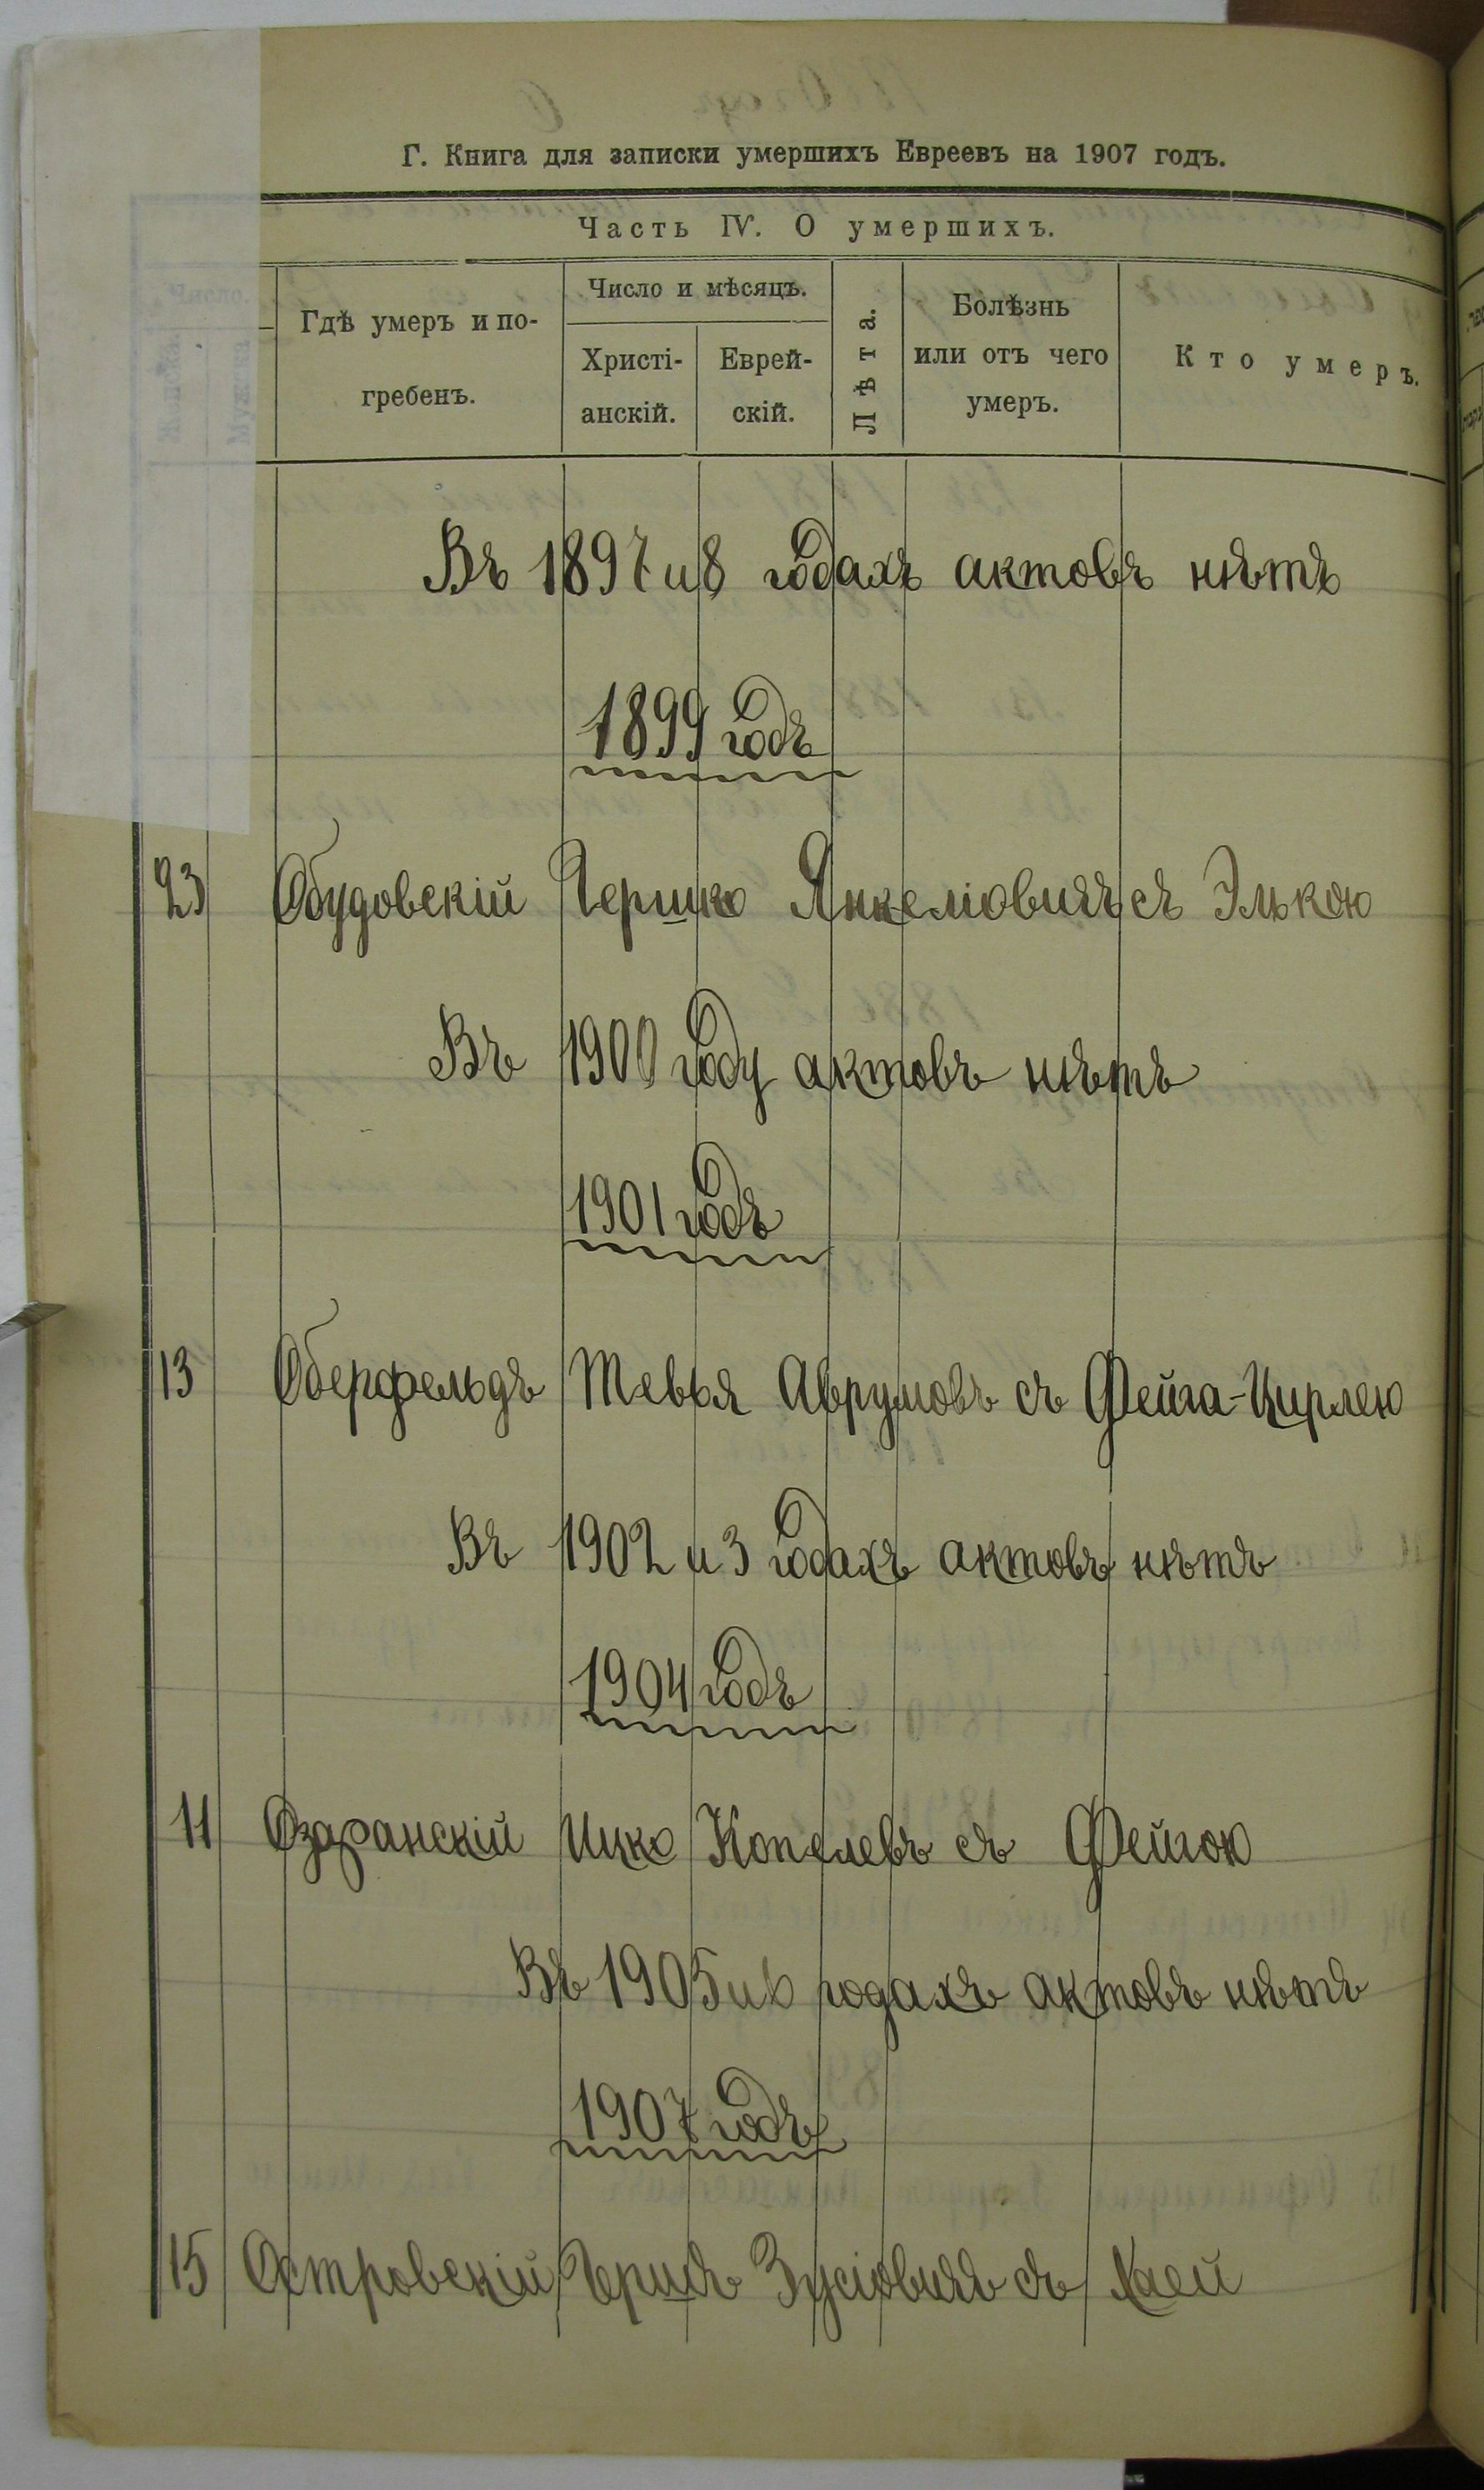 Г. Книга для записки умершихъ Евреевъ на 1907 годъ.
Часть IV. О умершихъ.
Число.
Женска.
Мужска
Гдѣ умеръ и по-
гребенъ.
Число и мѣсяцъ.
Христі-
анскій.
Еврей-
скій.
Лѣта.
Болѣзнь
или отъ чего
умеръ.
Кто умеръ.
Въ 1897 и 8 годахъ актовъ нѣтъ
1899 годъ
23 Обудовскій Гершко Янкеліовичъ съ Элькою
Въ 1900 году актовъ нѣтъ
1901 годъ
13 Оберфельдъ Тевья Аврумовъ съ Фейга-Цирлею
Въ 1902 и 3 годахъ актовъ нѣтъ
1904 годъ
11 Озаранскій Ицко Копелевъ съ Фейгою
Въ 1905 и 6 годахъ актовъ нѣтъ
1907 годъ
15 Островскій Гершъ Зусіовичъ съ Хаей